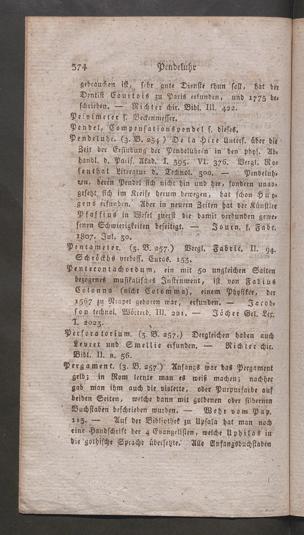 574 Pendeluhr
gebrauchen ist, sehr gute Dienste thun soll, hat der
Dentist Courtois zu Paris erfunden, und 1775 be-
schrieben. — Richter chir. Bibl. III. 422.
Pelvimeter s. Beckenmesser.
Pendel, Compensationspendel s. dieses.
Pendeluhr. (3. B. 254) De la Hire Unters. über die
Zeit der Erfindung der Pendeluhr in den phys. Ab-
handl. d. Paris. Akad. I. 595. VI. 376. Vergl. Ro-
senthal Literatur d. Technol. 500. — Pendeluh-
ren, deren Pendel sich nicht hin und her, sondern unaus-
gesetzt sich im Kreise herum bewegen, hat schon Huy-
gens erfunden. Aber in neuern Zeiten hat der Künstler
Pfaffius in Wesel zuerst die damit verbunden gewe-
senen Schwierigkeiten beseitigt. — Journ. f. Fabr.
1807. Jul. 50.
Pentameter. (3. B. 257.) Vergl. Fabric. II. 94.
Schröckhs
Pentecontachordum, ein mit 50 ungleichen Saiten
bezogenes musikalisches Instrument, ist von Fabius
Colonna (nicht Columna), einem Physiker, der
1567 zu Neapel geboren war, erfunden. — Jacob-
son technol. Wörterb. III. 291. — Jöcher Gel. Lex.
I. 2023.
Perforatorium. (3. B. 257.) Dergleichen haben auch
Levret und Smellie erfunden. — Richter chir.
Bibl. II. n. 56.
Pergament. (3. B. 257.) Anfangs war das Pergament
gelb; in Rom lernte man es weiß machen; nachher
gab man ihm auch die violette, oder Purpurfarbe auf
beiden Seiten, welche dann mit goldenen oder silbernen
Buchstaben beschrieben wurden. — Wehr vom Pap.
115. — Auf der Bibliothek zu Upsala hat man noch
eine Handschrift der 4 Evangelisten, welche Ulphilas in
die gothische Sprache übersetzte. Alle Anfangsbuchstaben